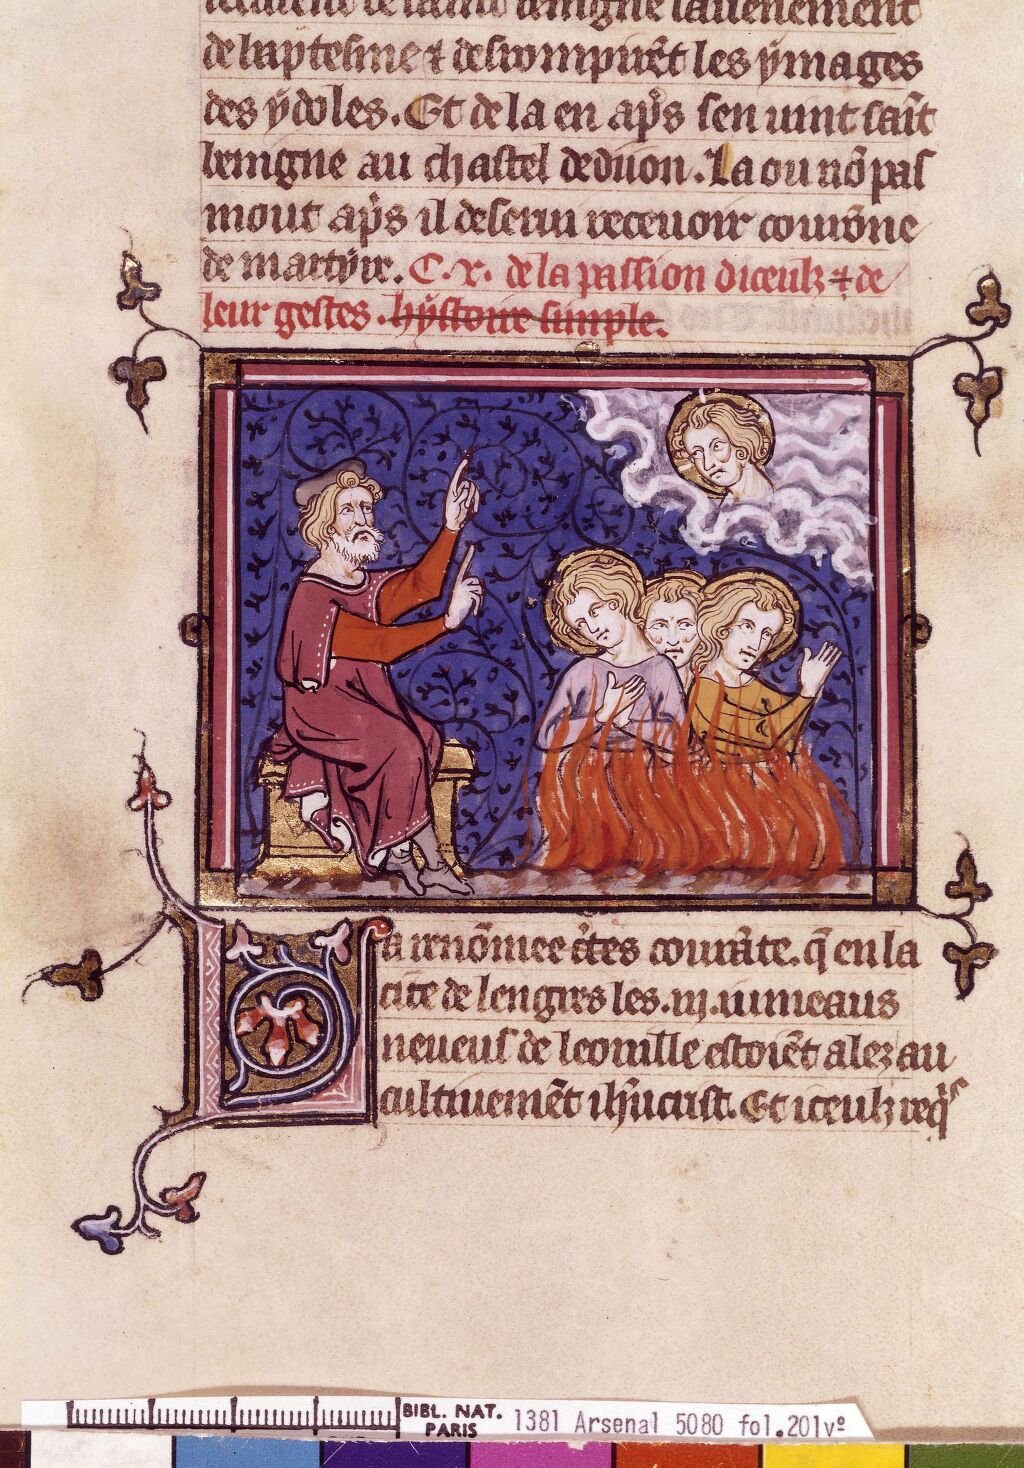 de baptesme ⁊ desrompirẽt les ẏmages
des ẏdoles. Et de la en ap̃s sen uint saĩt
benigne au chastel de diuon. La ou nõ pas
mout ap̃s il deserui receuoir courõne
de martẏre. C. x. de la passion diceulz ⁊ de
leur gestes. hẏstoire simple.
La renõmee c̾tes courãte. q̃ en la
cite de lengres les .iij. iumeaus
neueus de leonille estoiẽt alez au
cultiuemẽt ihũcrist. Et iceulz req̾s
BIBL. NAT. PARIS 1381 Arsenal 5080 fol.201vº